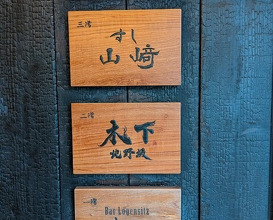 三階
すし
山﨑
二階
木下
北野坂
一階
Bar Logensitz